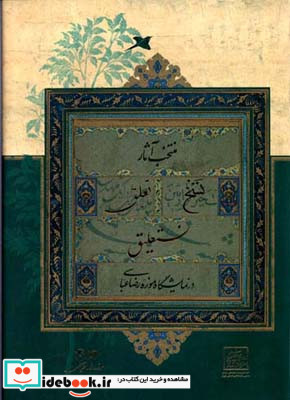 منتخب آثار
نسخ تعلیق
نستعلیق
در نمایشگاه موزه رضا عباسی
ایده بوک
مشاهده و خرید این کتاب در: